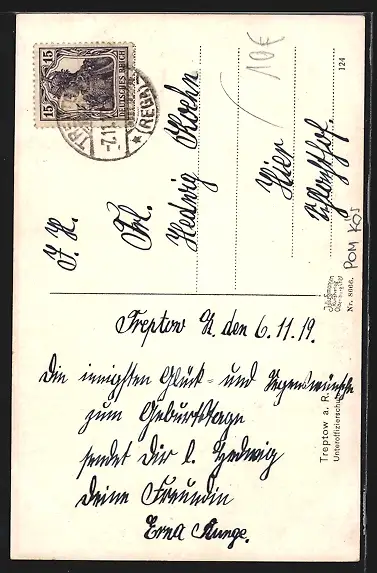 15 15
DEUTSCHES REICH
(REGA)
10€
124
J. H.
Frl.
Hedwig Koehn
Hier
Posthof.
POM KÖS
Nr. 8066.
Treptow a. R.
Unteroffizierschule
Treptow R. den 6.11.19.
Die innigsten Glück- und Segenswünsche
zum Geburtstage
sendet Dir l. Hedwig
Deine Freundin
Erna Runge.